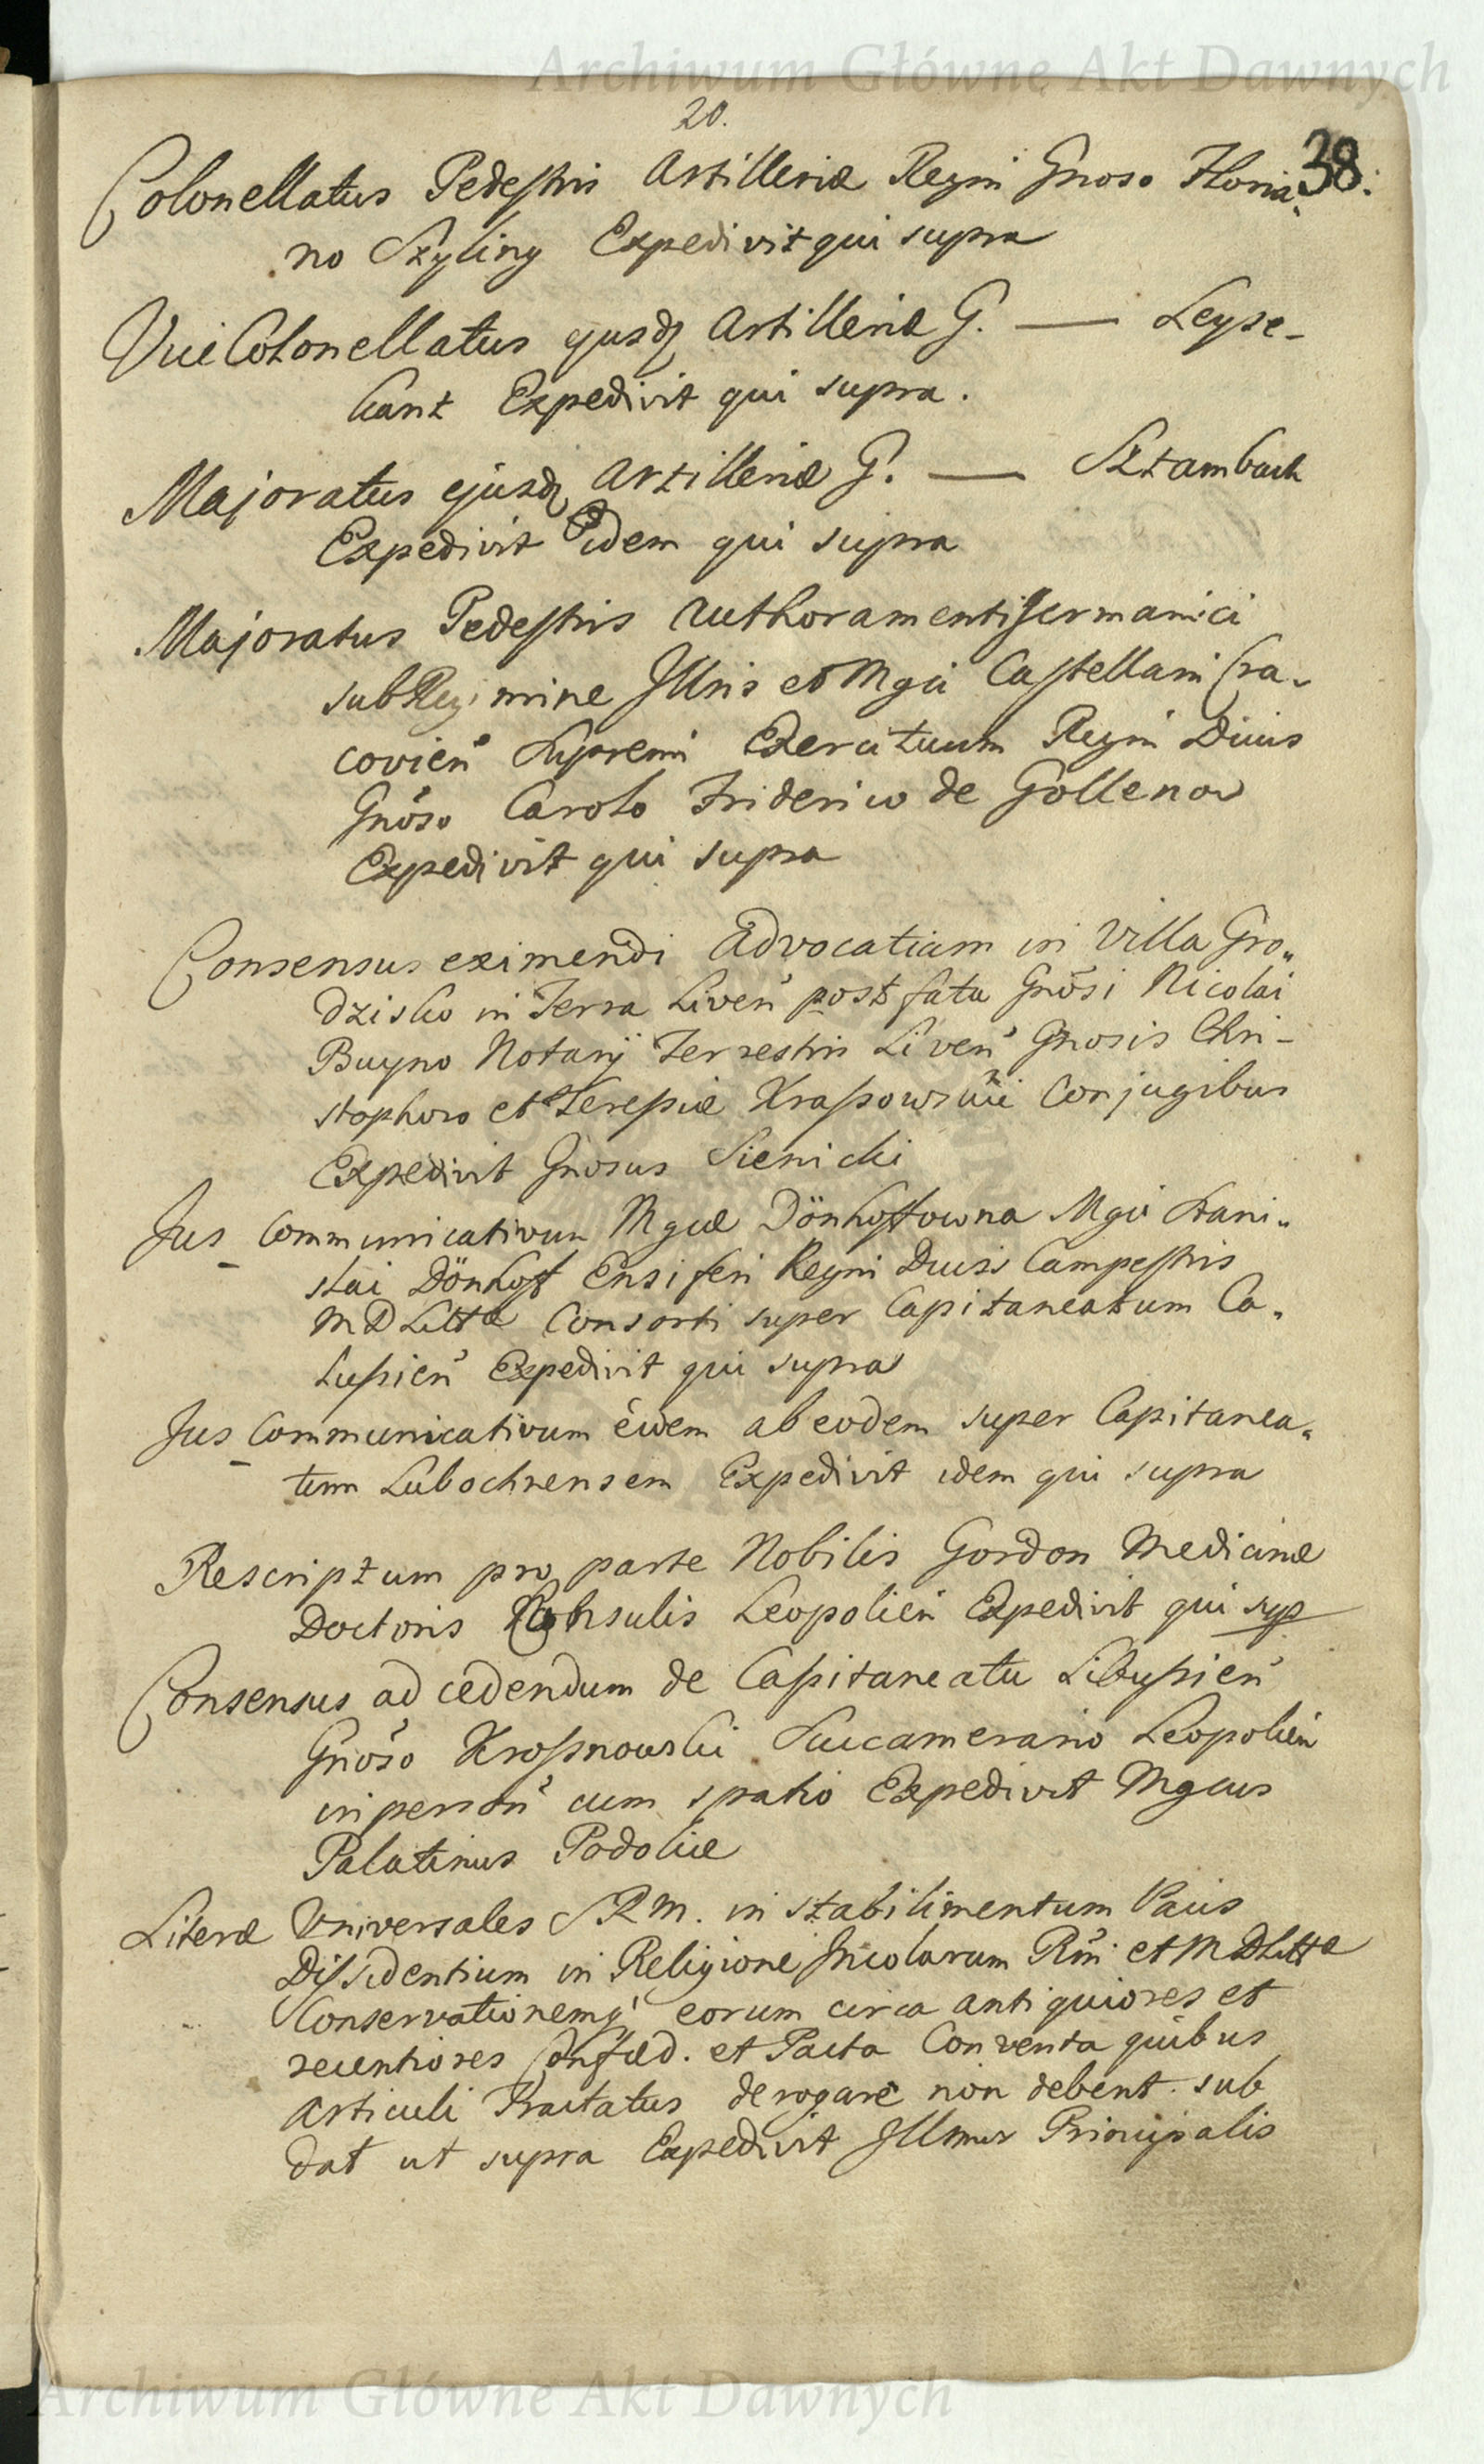 Archiwum Główne Akt Dawnych
20.
38.
Colonellatus Pedestris Artilleriæ Regni Gnoso Floria-
no Szyling Expedivit qui supra
Vice Colonellatus ejusdq Artilleriæ G. — Leyse-
kant Expedivit qui supra.
Majoratus ejusdq Artilleriæ G. — Sztambach
Expedivit Idem qui supra
Majoratus Pedestris Authoramenti Germanici
sub Regimine Illris et Mgci Castellani Cra-
covien Supremi Exercituum Regni Ducis
Gnoso Carolo Friderico de Gollenow
Expedivit qui supra
Consensus eximendi Advocatiam in Villa Gro-
dzisko in Terra Liven post fata Gnosi Nicolai
Buyno Notarij Terrestris Liven Gnosis Chri-
stophoro et Teressiæ Conjugibus
Expedivit Gnosus Sienicki
Jus Communicativum Mgcæ Dönhoffowna Mgci Stani-
slai Dönhoff Ensiferi Regni Ducis Campestris
MD Littæ Consorti super Capitaneatum Ca-
lussien Expedivit qui supra
Jus Communicativum eidem ab eodem super Capitanea-
tum Lubochnensem Expedivit idem qui supra
Rescriptum pro parte Nobilis Gordon Medicinæ
Doctoris Consulis Leopolien Expedivit qui sup
Consensus ad cedendum de Capitaneatu Libussien
Gnoso Krossnowski Succamerario Leopolien
in person cum spatio Expedivit Mgcus
Palatinus Podoliæ
Literæ Universales SRM. in stabilimentum Pacis
Dissidentium in Religione Incolarum Rni et MDLittæ
Conservationemq eorum circa antiquiores et
recentiores Confæd. et Pacta Conventa quibus
Articuli Tractatus derogare non debent. sub
dat ut supra Expedivit Illmus Principalis
Archiwum Główne Akt Dawnych